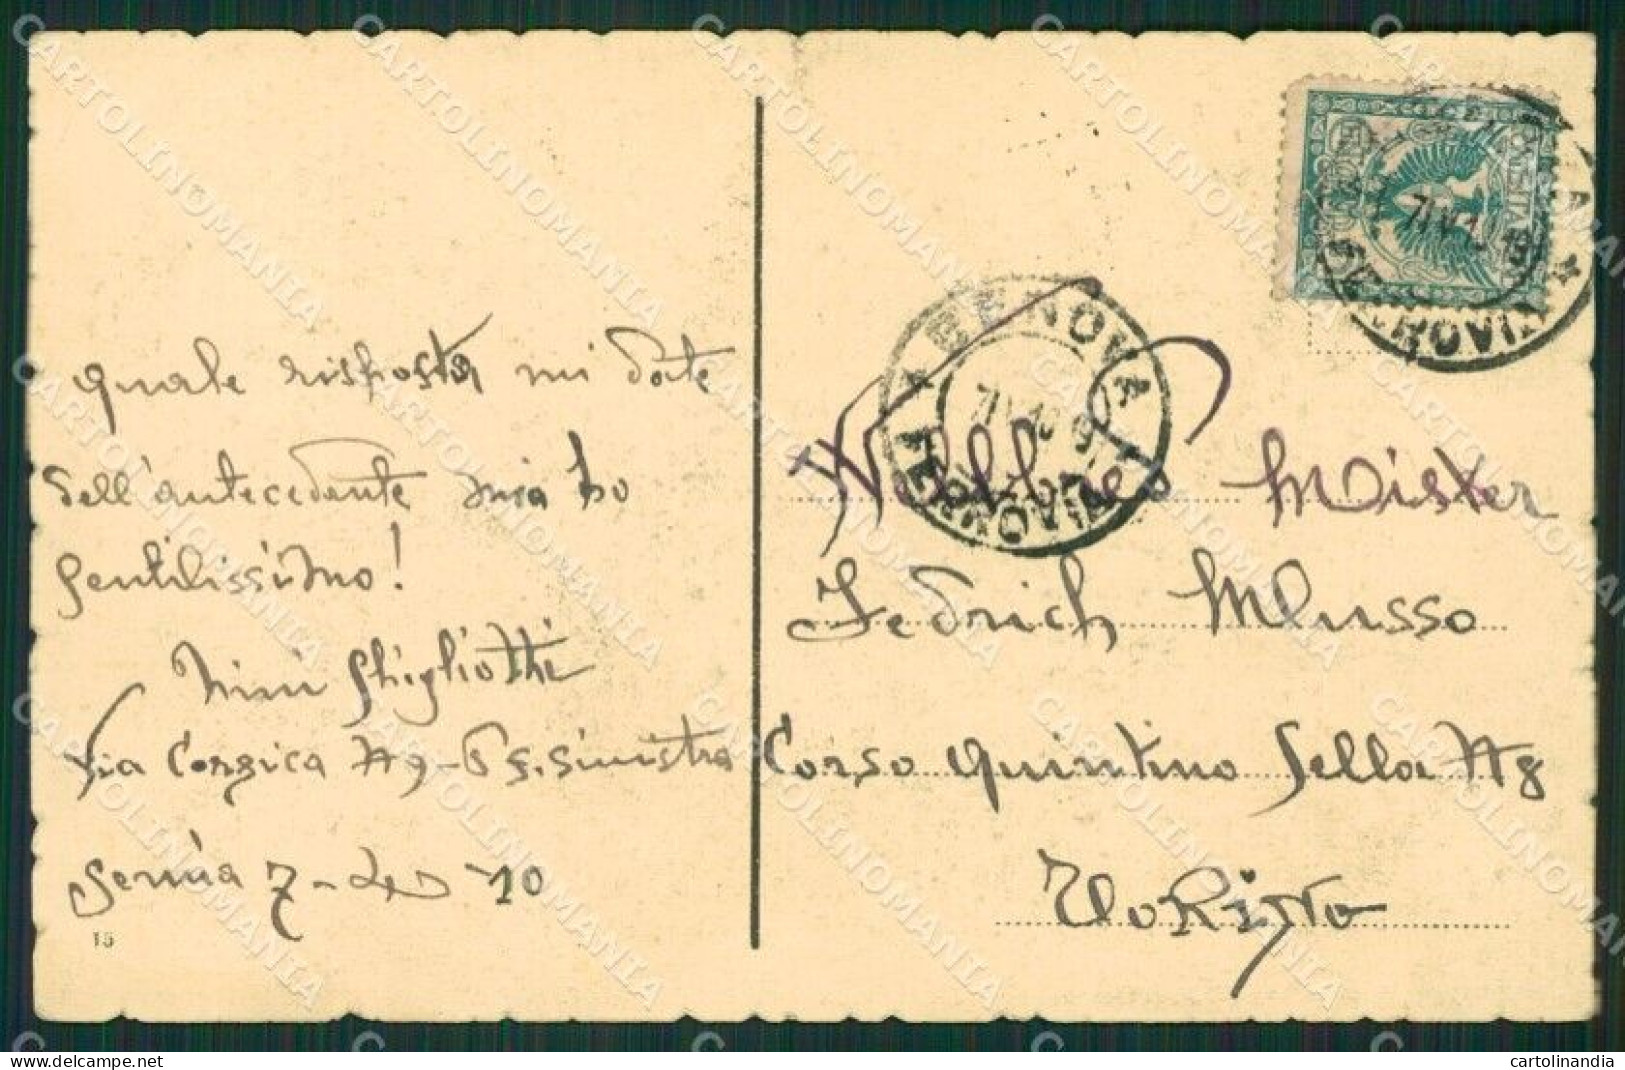 quale risposta mi date
dell'antecedente mia so
gentilissimo!
Nini Ghigliotti
Via Corsica N 9 - 6 s. sinistra
Genúa 7-4-10
15
GENOVA
FERROVIA
FERROVIA
Mister
Fedrich Musso
Corso Quintino Sella N 8
Torino
CARTOLINOMANIA
delcampe.net
cartolinandia